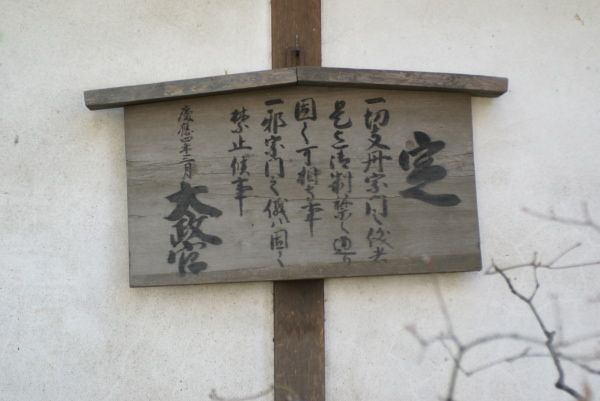 定
一切支丹宗門之儀者
是迄御制禁之通り
固く可相守事
一邪宗門之儀ハ固く
禁止候事
慶應四年三月
太政官